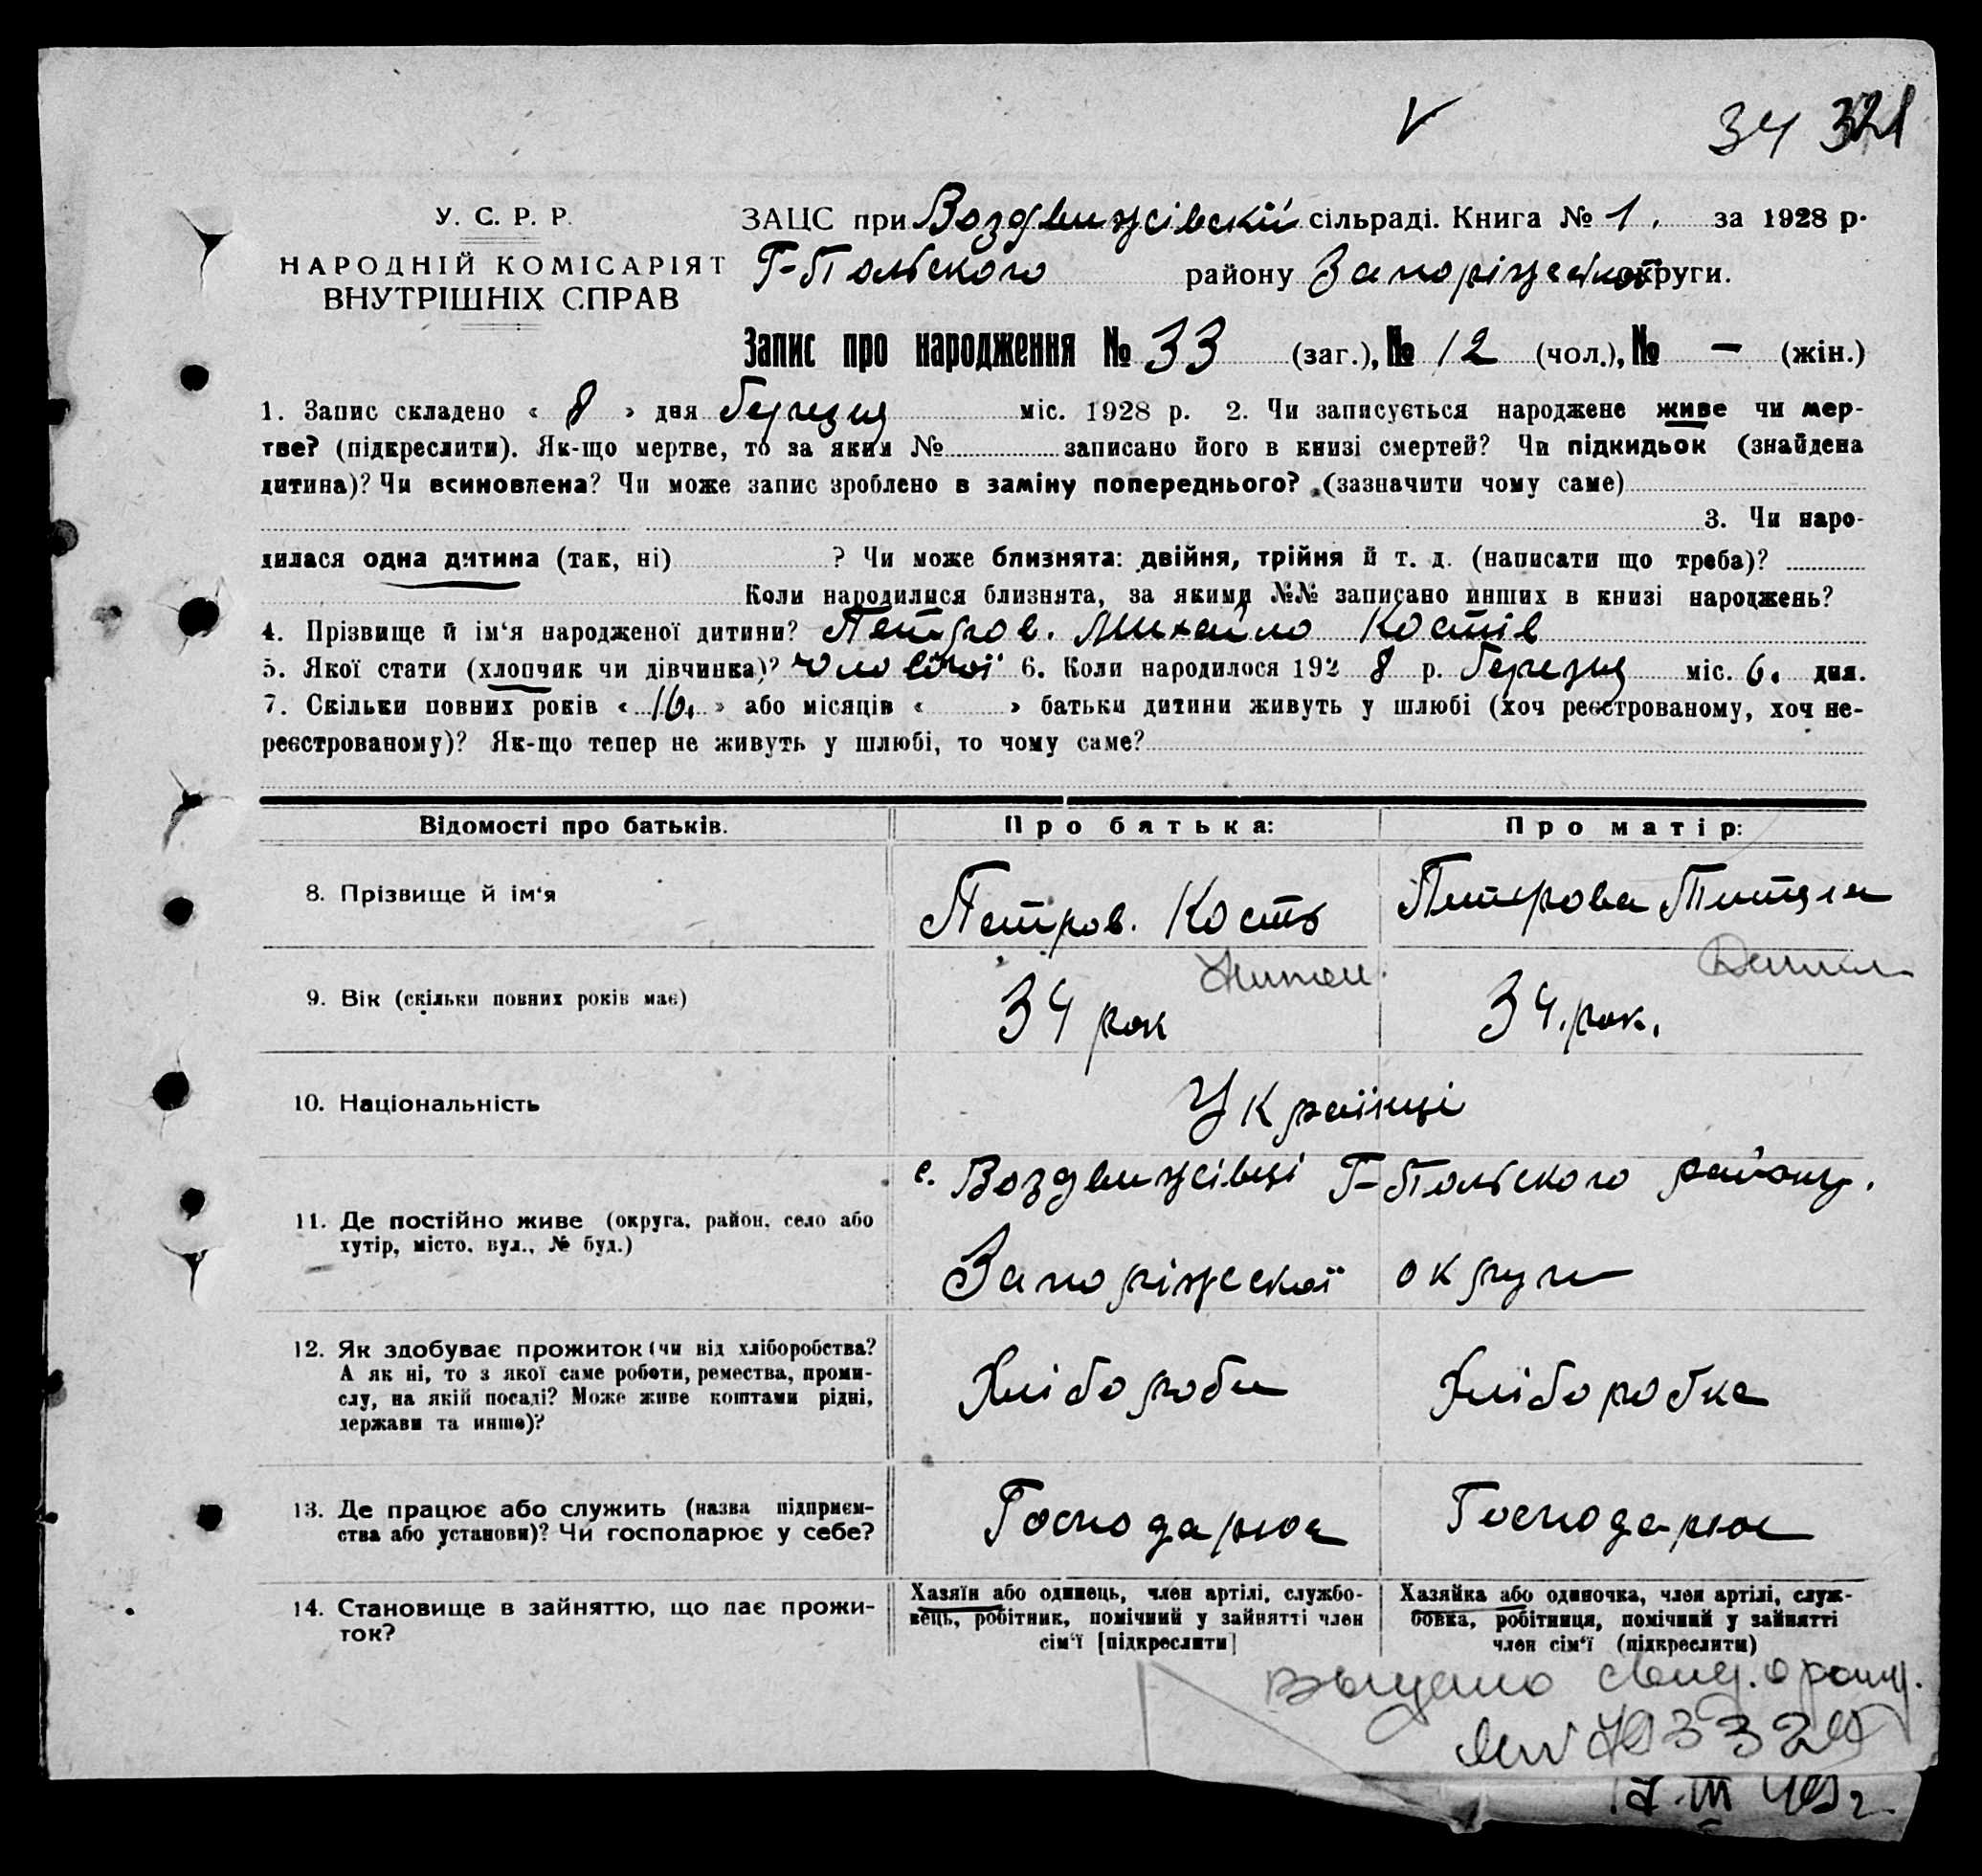 34 321
У. С. Р. Р.
НАРОДНІЙ КОМІСАРІЯТ
ВНУТРІШНІХ СПРАВ
ЗАЦС при Воздвижсівскій сільраді. Книга № 1. за 1928 р.
Г-Польского району Запоріжської округи.
Запис про народження № 33 (заг.), № 12 (чол.), № — (жін.)
1. Запис складено « 8 » дня березня міс. 1928 р. 2. Чи записується народжене живе чи мер-
тве? (підкреслити). Як-що мертве, то за яким № записано його в книзі смертей? Чи підкидьок (знайдена
дитина)? Чи всиновлена? Чи може запис зроблено в заміну попереднього? (зазначити чому саме)
3. Чи наро-
дилася одна дитина (так, ні) ? Чи може близнята: двійня, трійня й т. д. (написати що треба)?
Коли народилися близнята, за якими №№ записано инших в книзі народжень?
4. Прізвище й ім'я народженої дитини? Петров. Михайло Костів
5. Якої стати (хлопчик чи дівчинка)? чоловічої 6. Коли народилося 192 8 р. березня міс. 6. дня.
7. Скільки повних років « 16. » або місяців « » батьки дитини живуть у шлюбі (хоч реєстрованому, хоч не-
реєстрованому)? Як-що тепер не живуть у шлюбі, то чому саме?
Відомості про батьків. Про батька: Про матір:
8. Прізвище й ім'я Петров. Кость Петрова
9. Вік (скільки повних років має) 34 рок 34. рок.
10. Національність Українці
с. Воздвижсівці Г-Польского району.
11. Де постійно живе (округа, район, село або
хутір, місто, вул., № буд.)
Запоріжської округи
12. Як здобуває прожиток (чи від хліборобства?
А як ні, то з якої саме роботи, ремества, проми-
слу, на якій посаді? Може живе коштами рідні,
держави та инше)?
Хлібороби Хліборобка
13. Де працює або служить (назва підприєм-
ства або установи)? Чи господарює у себе?
Господарює Господарює
14. Становище в зайняттю, що дає прожи-
ток?
Хазяїн або одинець, член артілі, службо-
вець, робітник, помічний у зайнятті член
сім'ї [підкреслити]
Хазяйка або одиночка, член артілі, служ-
бовка, робітниця, помічний у зайнятті
член сім'ї (підкреслити)
выдано свид. о рожд.
III